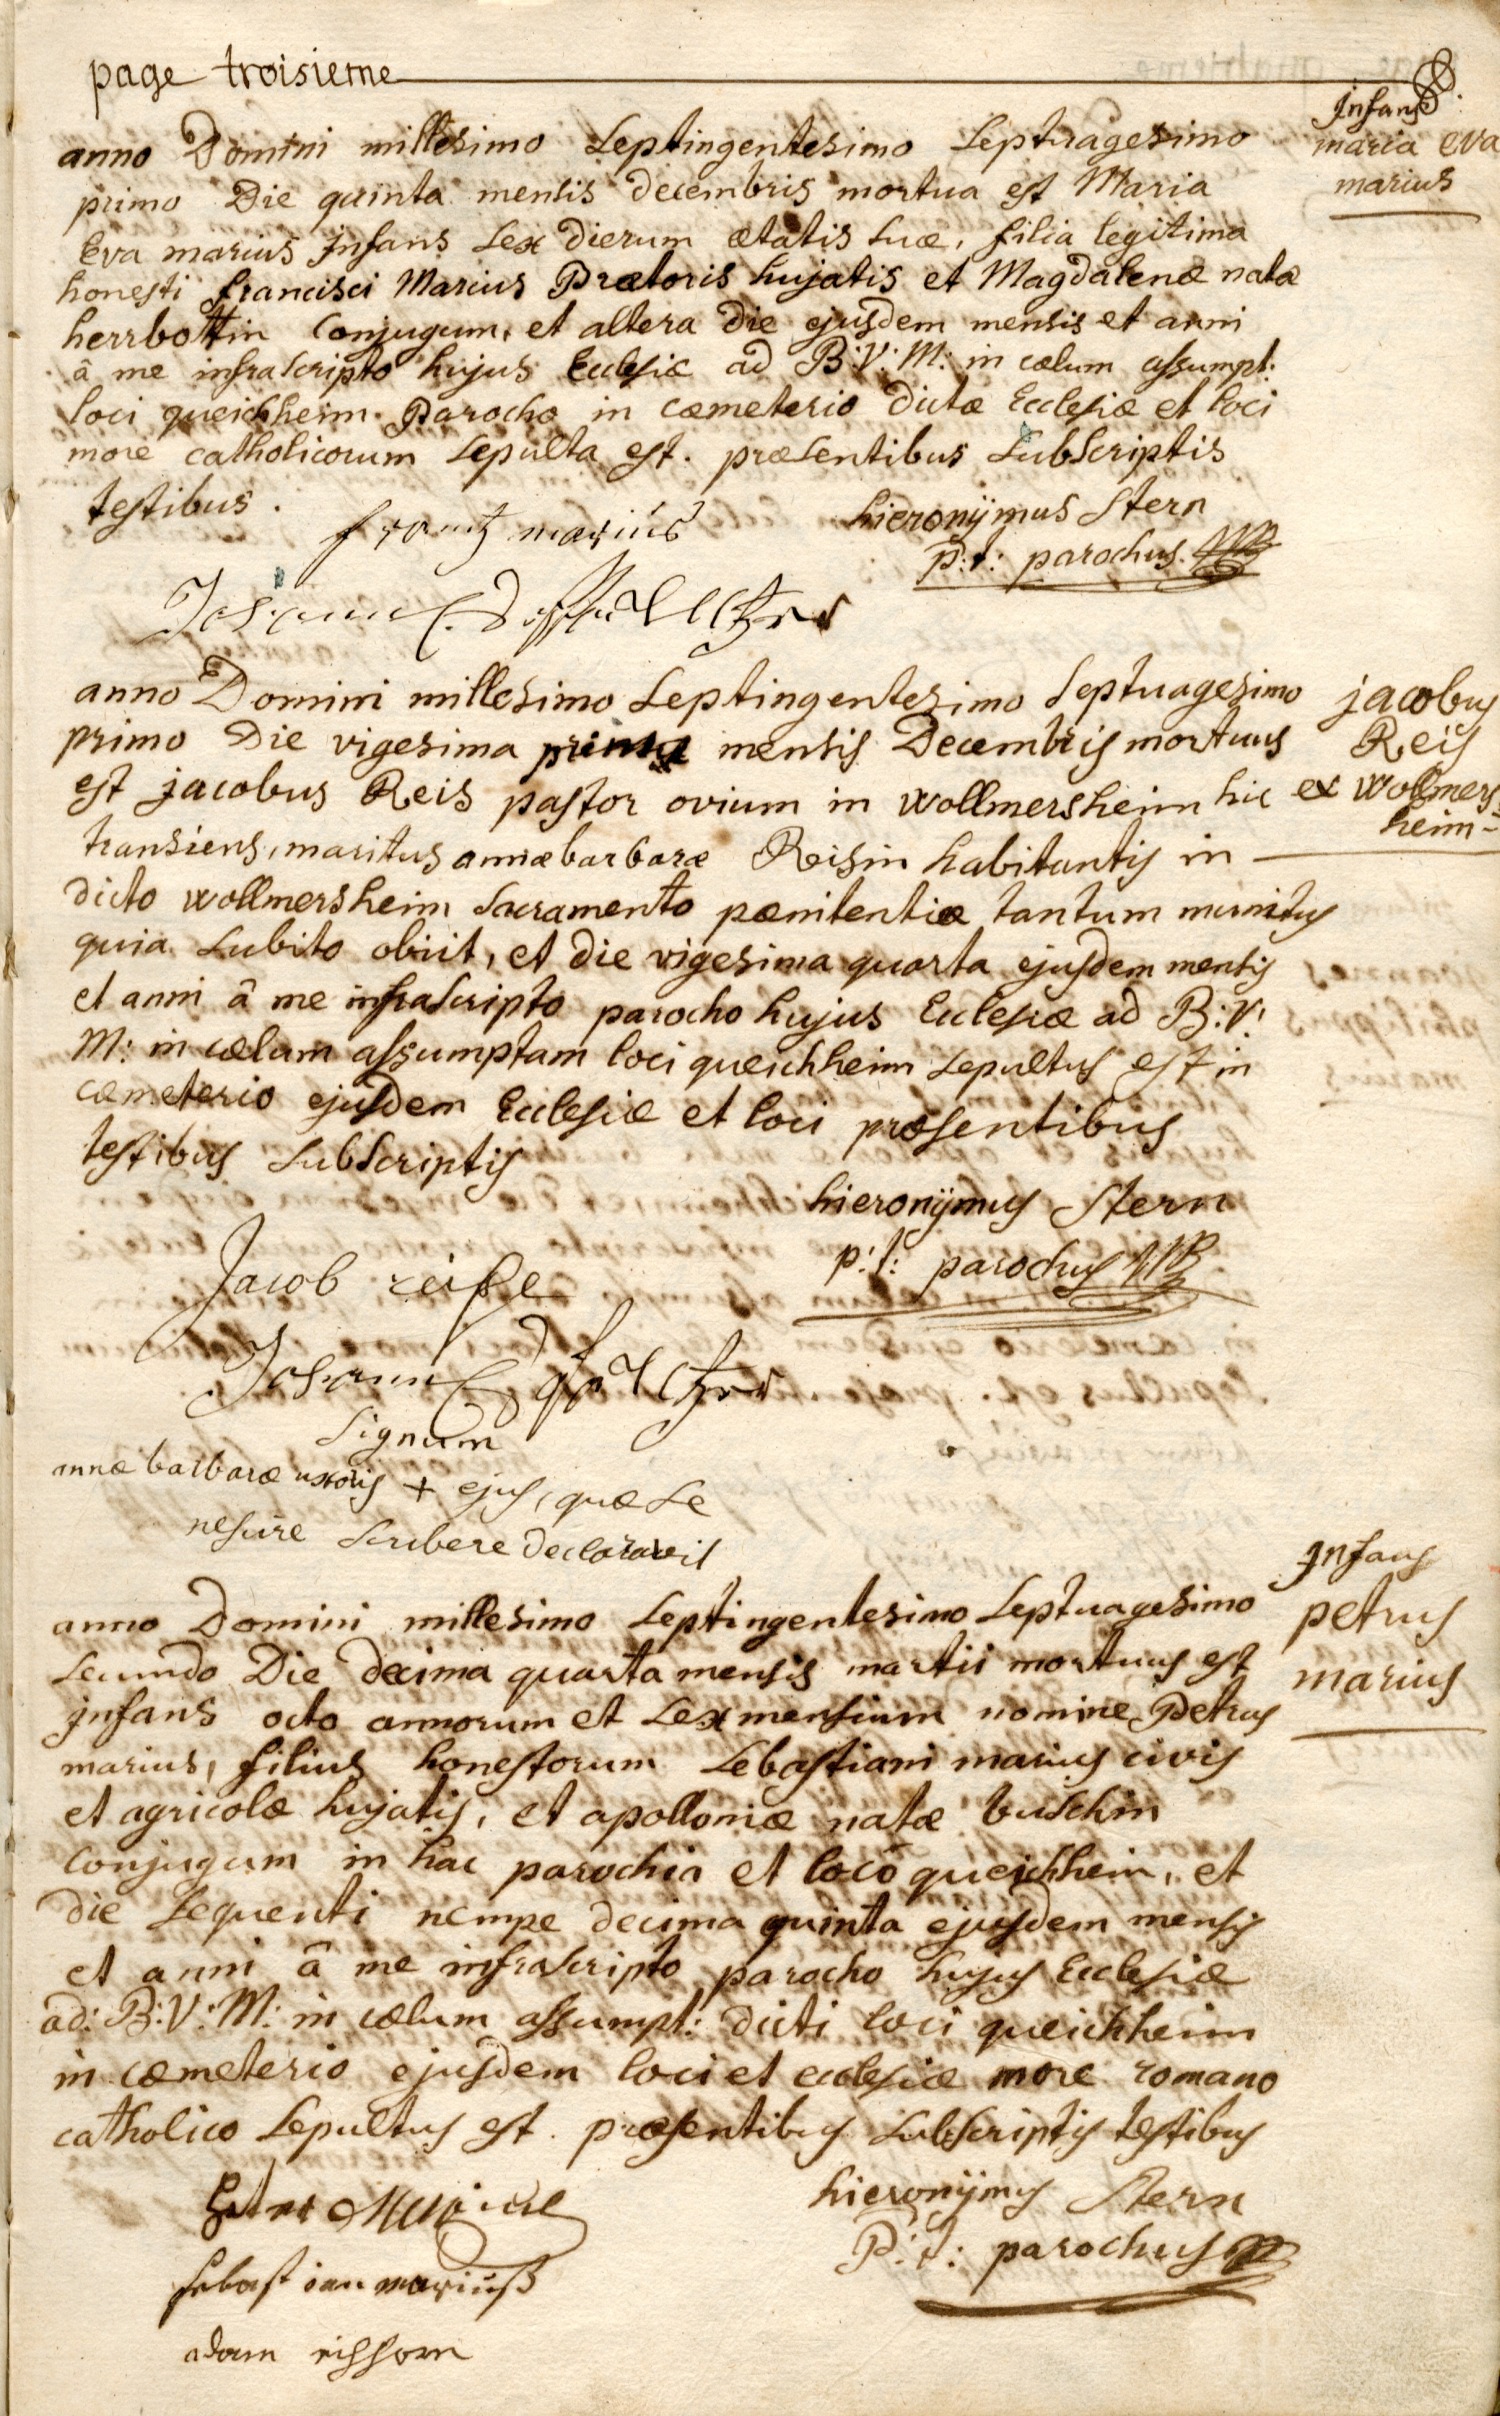 page troisieme
anno Domini millesimo septingentesimo septuagesimo
primo Die quinta mensis decembris mortua est Maria
Eva marius jnfans sex dierum ætatis suæ, filia legitima
honesti francisci Marius Prætoris hujatis et Magdalenæ natæ
herrbottin conjugum, et altera die ejusdem mensis et anni
â me infrascripto hujus Ecclesiæ ad B: V: M: in cælum assumpt:
loci queichheim Parocho in cæmeterio dictæ Ecclesiæ et loci
more catholicorum sepulta est. præsentibus subscriptis
testibus.
jnfans
maria eva
marius
frantz mariús
hieronÿmus Stern
p: t: parochus
anno Domini millesimo septingentesimo septuagesimo
primo die vigesima prima mensis Decembris mortuus
est jacobus Reis pastor ovium in wollmersheim hic
transiens, maritus annæ barbaræ Reisin habitantis in
dicto wollmersheim sacramento pænitentiæ tantum munitus
quia subito obiit, et die vigesima quarta ejusdem mensis
et anni â me infrascripto parocho hujus Ecclesiæ ad B: V:
M: in cælum assumptam loci queichheim sepultus est in
cæmeterio ejusdem Ecclesiæ et loci præsentibus
testibus subscriptis
jacobus
Reis
ex wollmers
heim-
hieronÿmus Stern
p: t: parochus
Jacob reise
signum
annæ barbaræ uxoris + ejus, quæ se
nescire scribere declaravit
anno Domini millesimo septingentesimo septuagesimo
secundo Die decima quarta mensis martii mortuus est
jnfans octo annorum et sex mensium nomine Petrus
marius, filius honestorum sebastiani marius civis
et agricolæ hujatis, et apolloniæ natæ buschin
conjugum in hac parochia et loco queichheim, et
die sequenti nempe decima quinta ejusdem mensis
et anni â me infrascripto parocho hujus Ecclesiæ
ad: B: V: M: in cælum assumpt: dicti loci queichheim
in cæmeterio ejusdem loci et ecclesiæ more romano
catholico sepultus est. præsentibus subscriptis testibus
jnfans
petrus
marius
hieronÿmus Stern
P: t: parochus
sebastian mariúß
adam